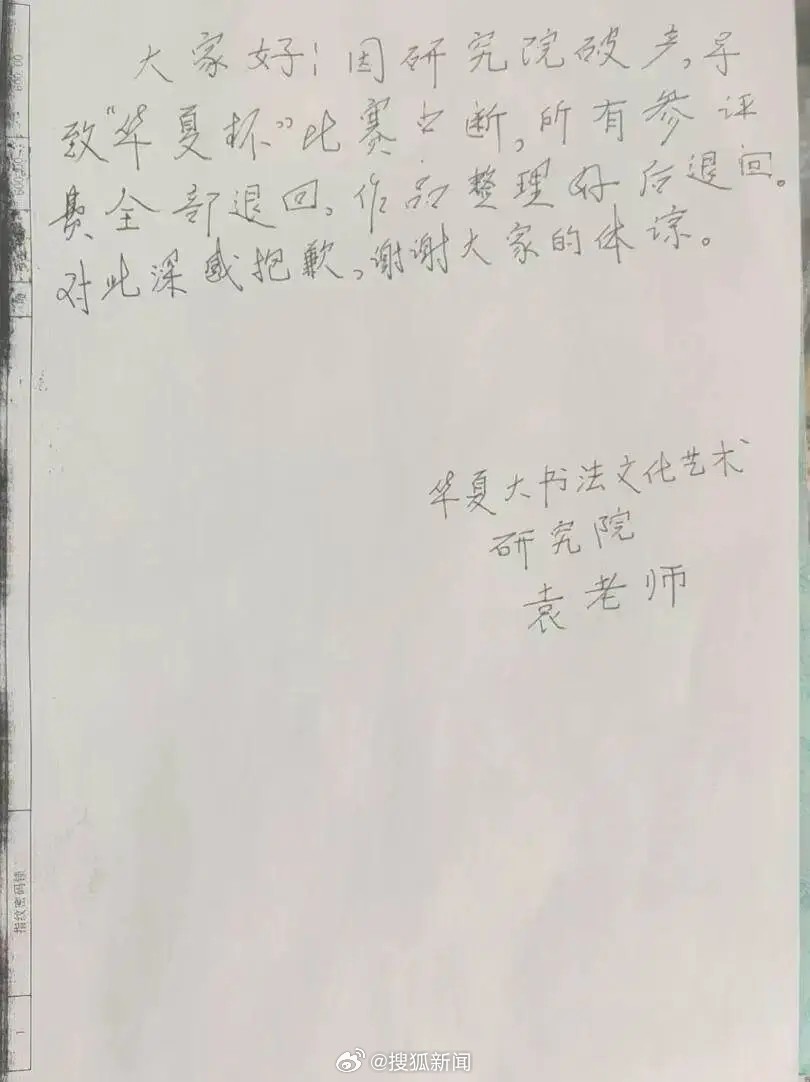 大家好！因研究院破产，导
致“华夏杯”比赛中断，所有参评
费全部退回，作品整理好后退回。
对此深感抱歉，谢谢大家的体谅。
华夏大书法文化艺术
研究院
袁老师
指纹密码锁
1
@搜狐新闻